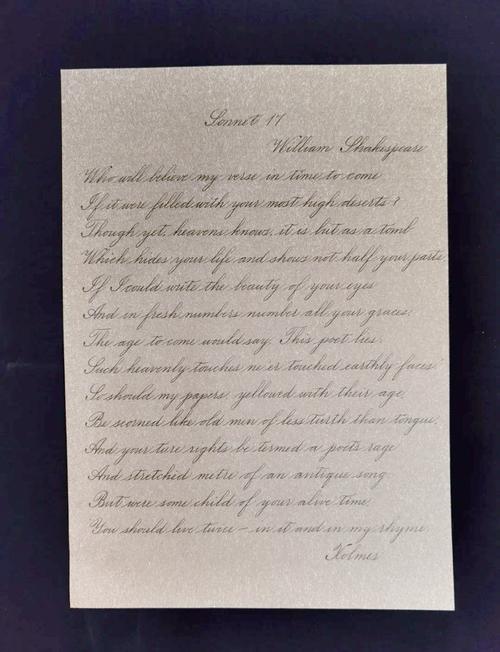 Sonnet 17
William Shakespeare
Who will believe my verse in time to come
If it were filled with your most high deserts?
Though yet, heavens knows, it is but as a tomb
Which hides your life and shows not half your parts
If I could write the beauty of your eyes
And in fresh numbers number all your graces,
The age to come would say, This poet lies:
Such heavenly touches ne'er touched earthly faces.'
So should my papers, yellowed with their age,
Be scorned like old men of less turth than tongue,
And your ture rights be termed a poets rage
And stretched metre of an antique song
But were some child of your alive time,
You should live twice – in it and in my rhyme.
Kolmes